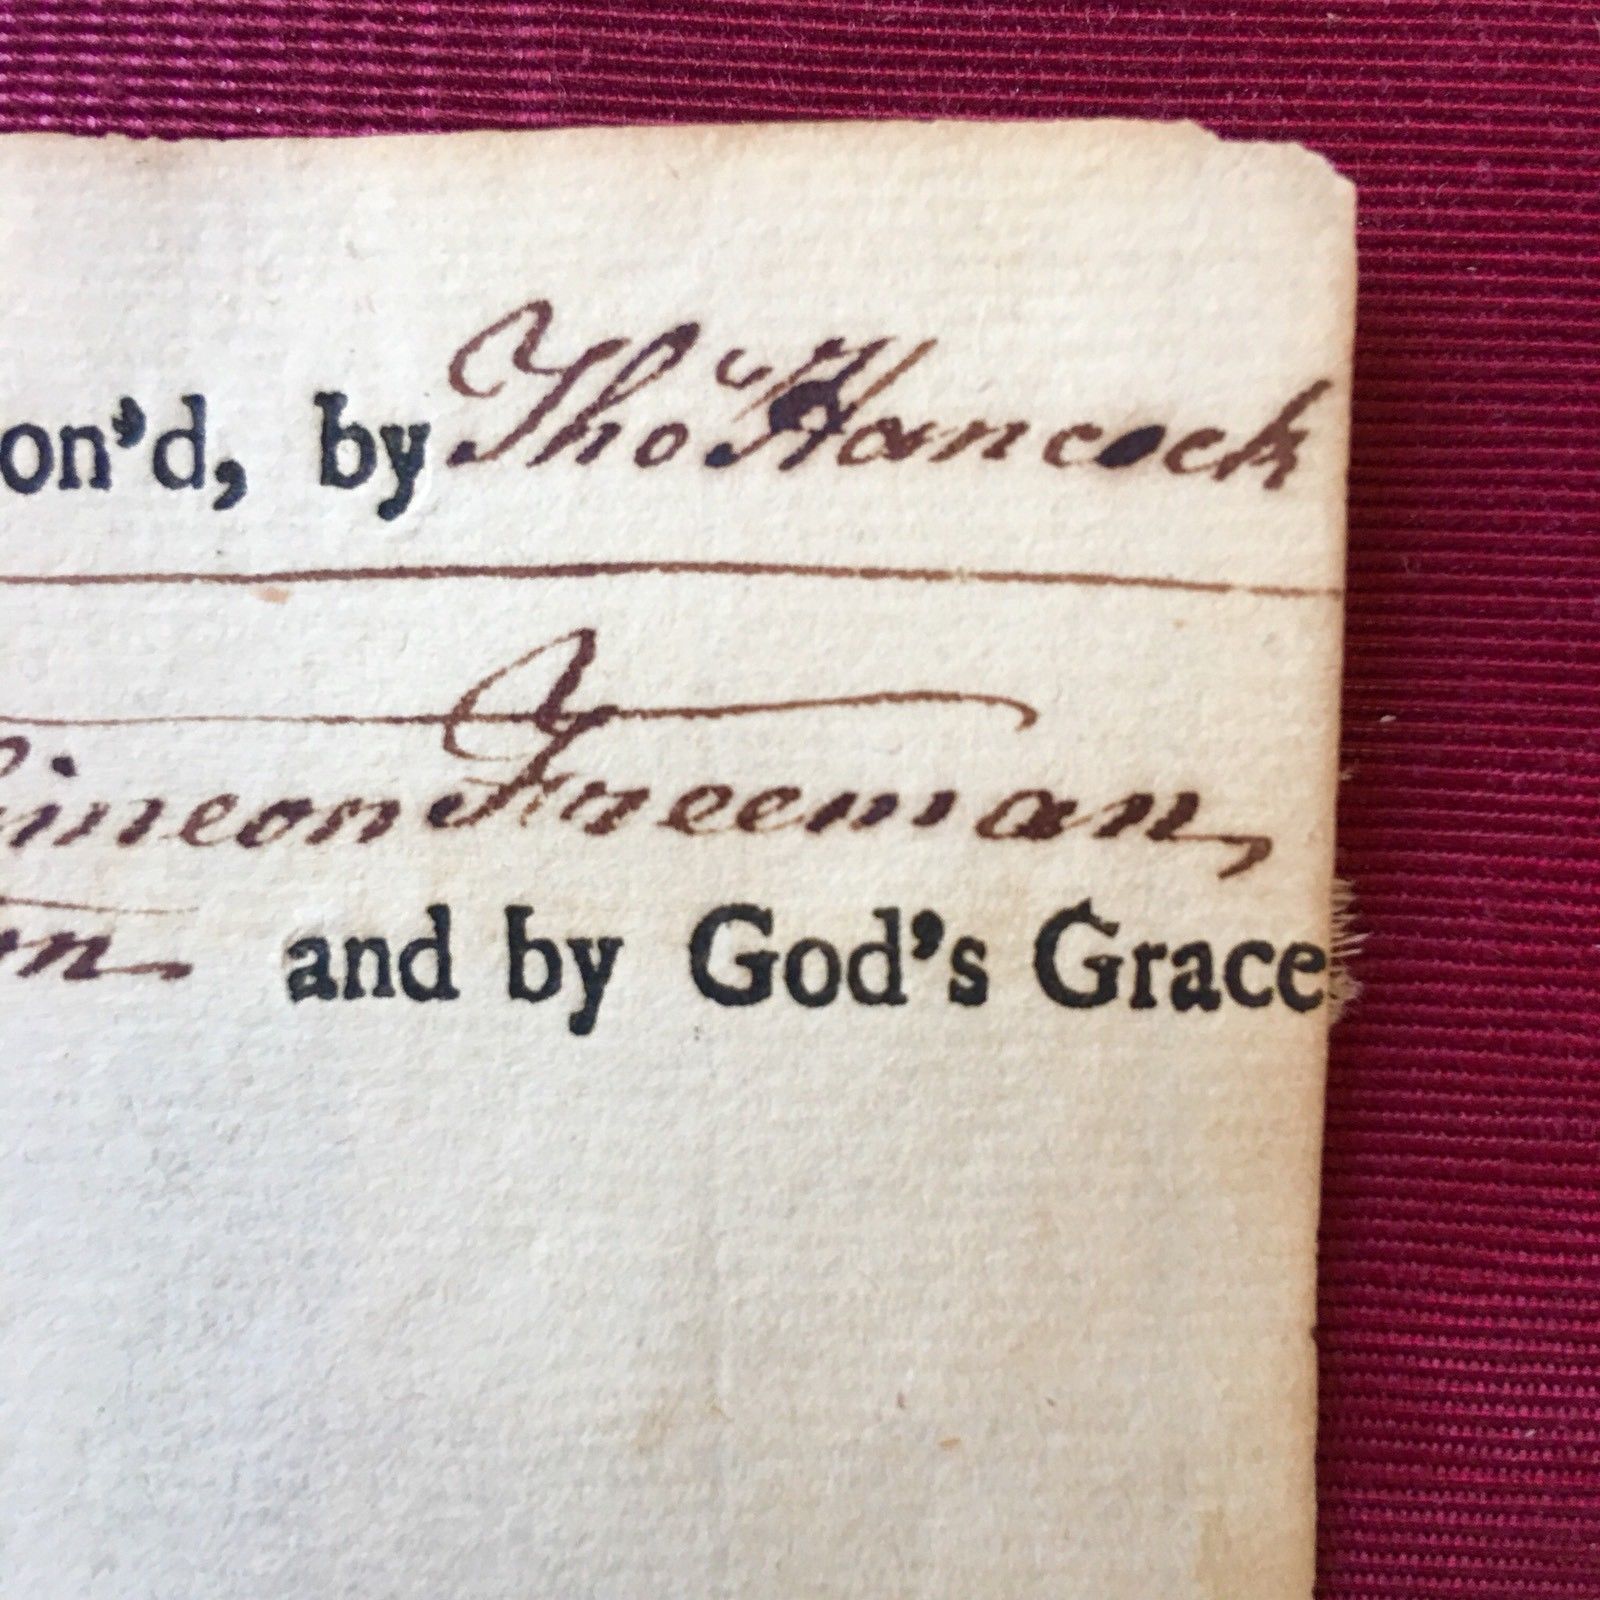 on'd, by Tho Hancock
Simeon Freeman,
on and by God's Grace